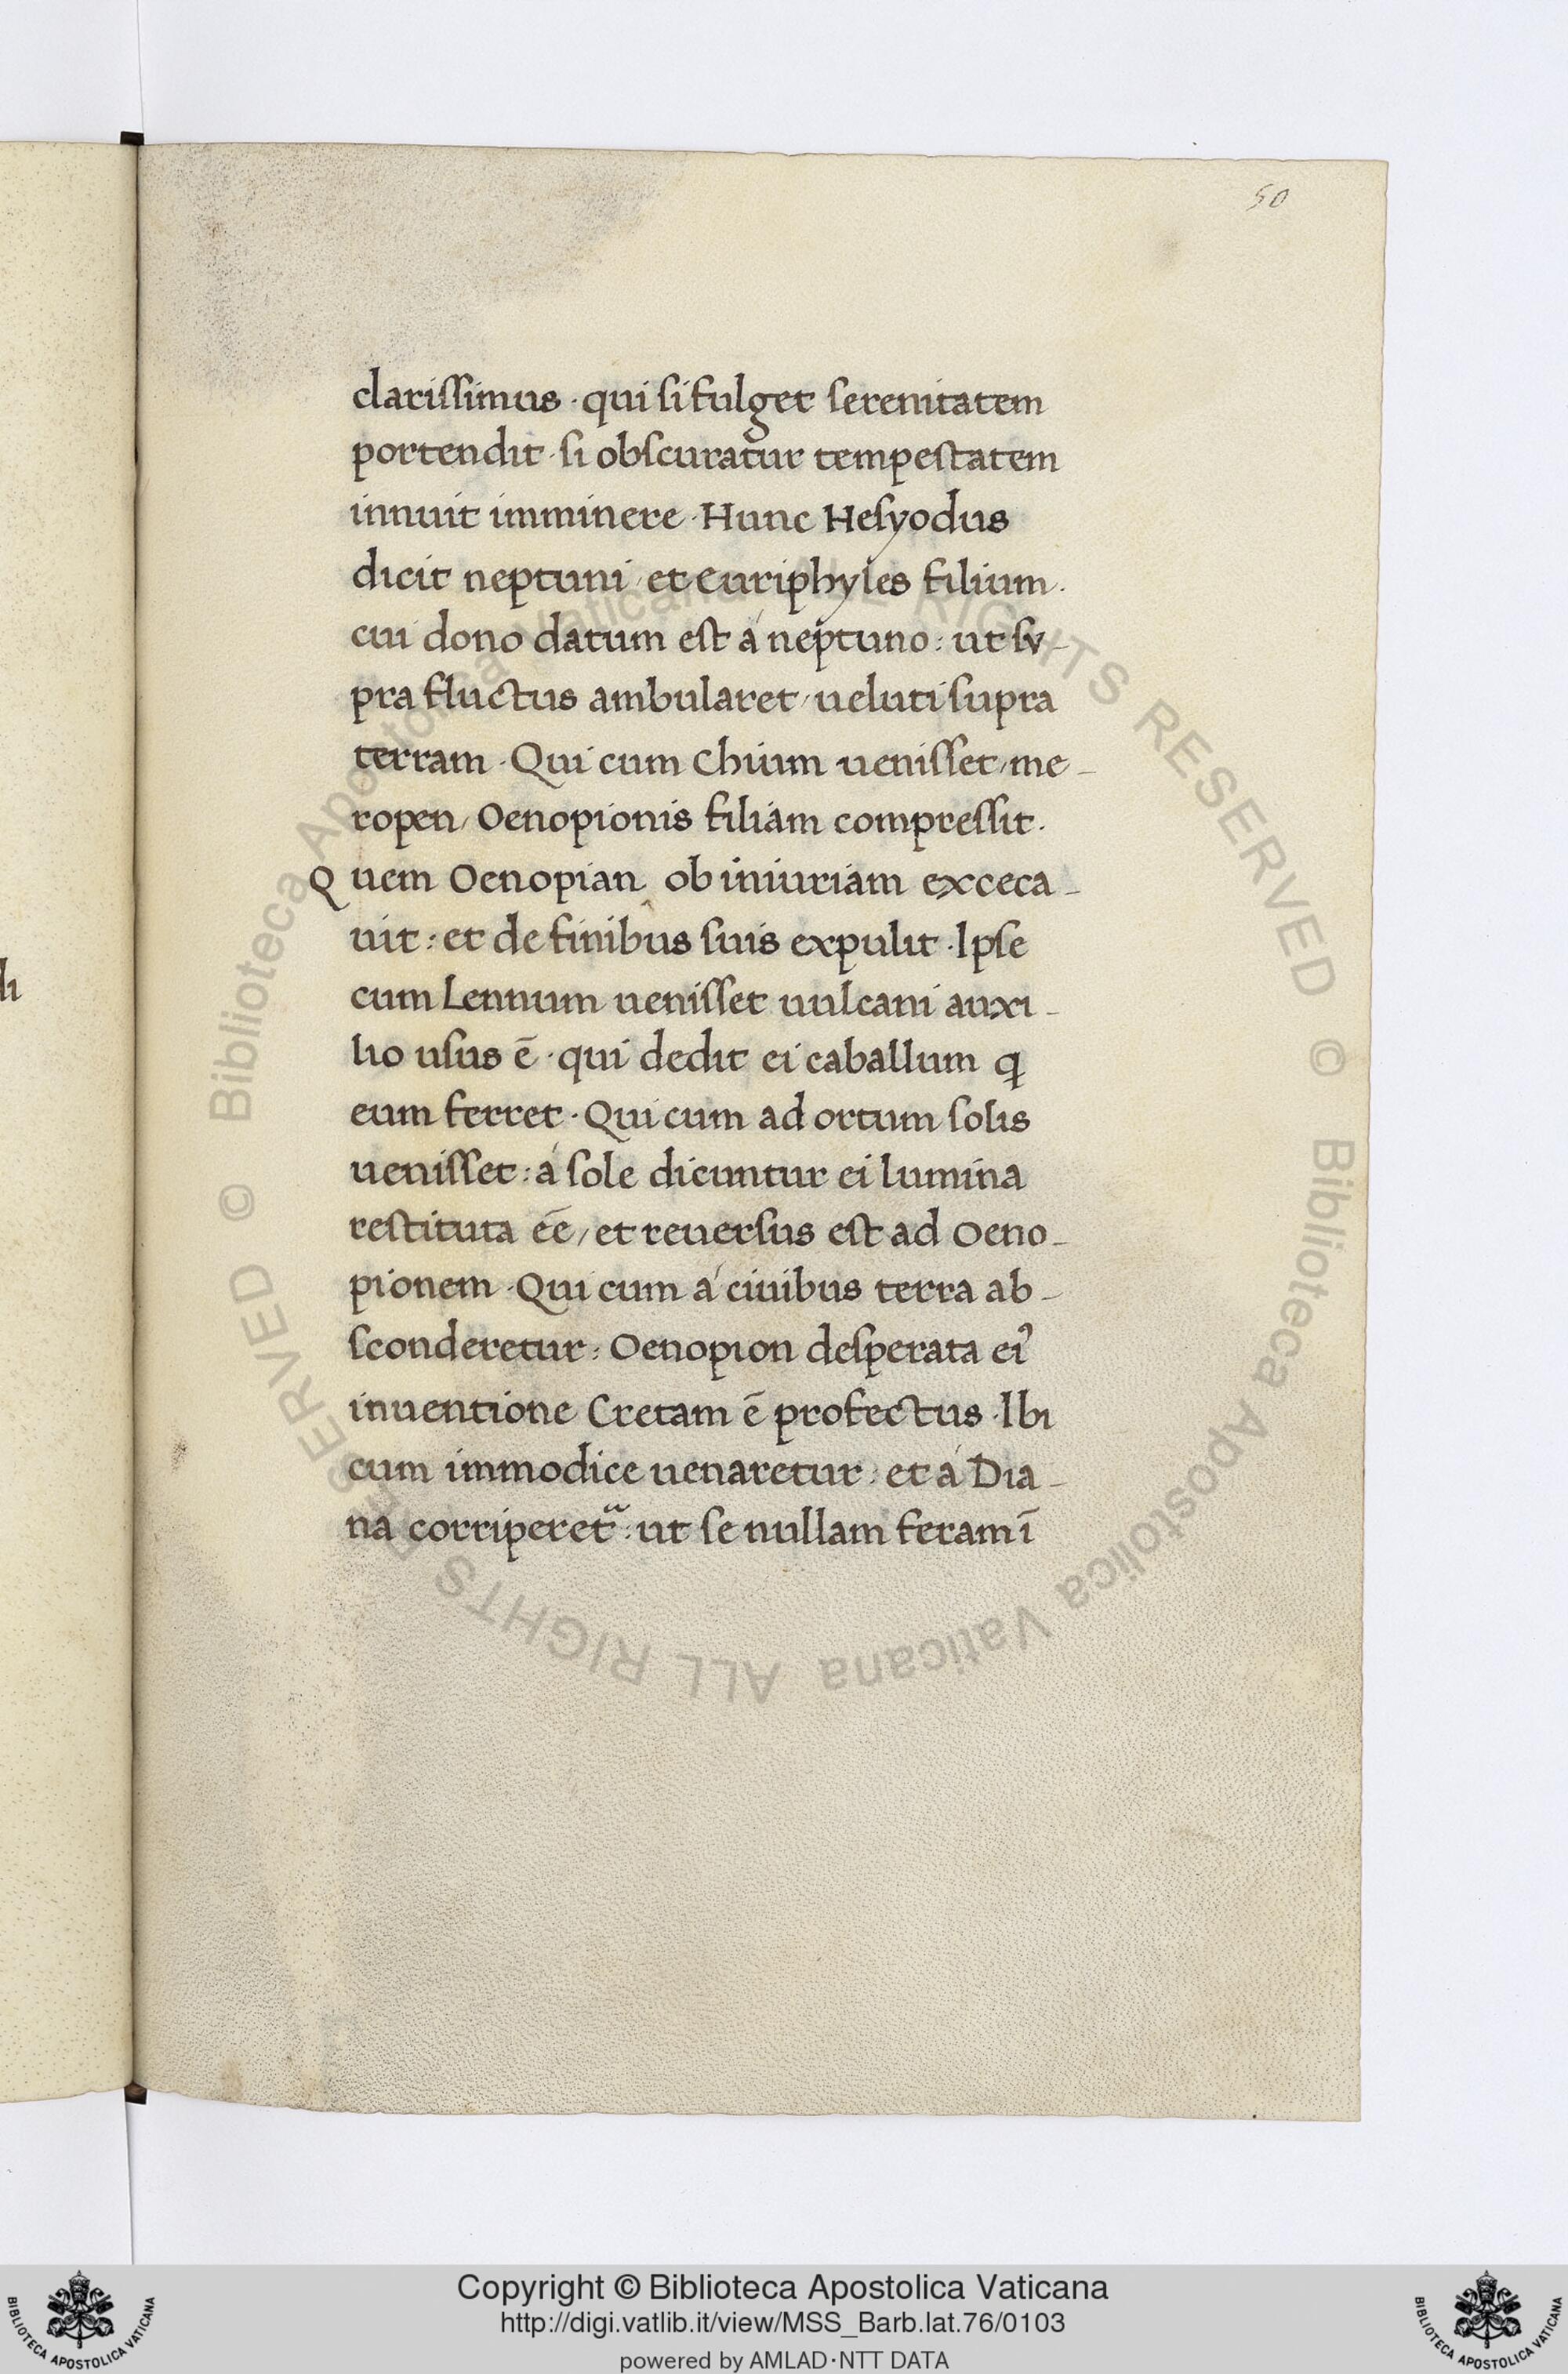 50
clarissimus · qui si fulget serenitatem
portendit · si obscuratur tempestatem
innuit imminere · Hunc Hesyodus
dicit neptuni / et euriphyles filium ·
cui dono datum est á neptuno : ut sv-
pra fluctus ambularet / ueluti supra
terram · Qui cum Chium uenisset / me-
ropen / Oenopionis filiam compressit ·
Quem Oenopian ob iniuriam exceca-
uit : et de finibus suis expulit · Ipse
cum Lennum uenisset uulcani auxi-
lio usus ē · qui dedit ei caballum ꝗ
eum ferret · Qui cum ad ortum solis
uenisset : á sole dicuntur ei lumina
restituta eē / et reuersus est ad Oeno-
pionem · Qui cum á ciuibus terra ab-
sconderetur : Oenopion desperata ei᾽
inuentione Cretam ē profectus · Ibi
cum immodice uenaretur : et á Dia-
na corriperet᷑ : ut se nullam feram ī
li
© Biblioteca Apostolica Vaticana ALL RIGHTS RESERVED © Biblioteca Apostolica Vaticana ALL RIGHTS RESERVED
Copyright © Biblioteca Apostolica Vaticana
http://digi.vatlib.it/view/MSS_Barb.lat.76/0103
powered by AMLAD·NTT DATA
BIBLIOTECA APOSTOLICA VATICANA
BIBLIOTECA APOSTOLICA VATICANA